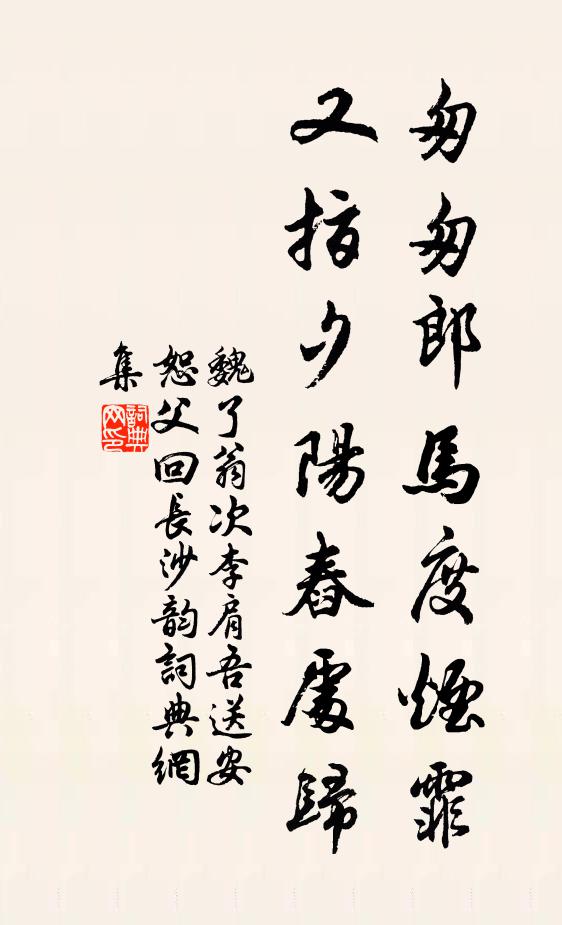 匆匆郎馬度煙霏
又指夕陽舂處歸
魏了翁次李肩吾送安
恕父回長沙韵詞典網
集
詞典
网印